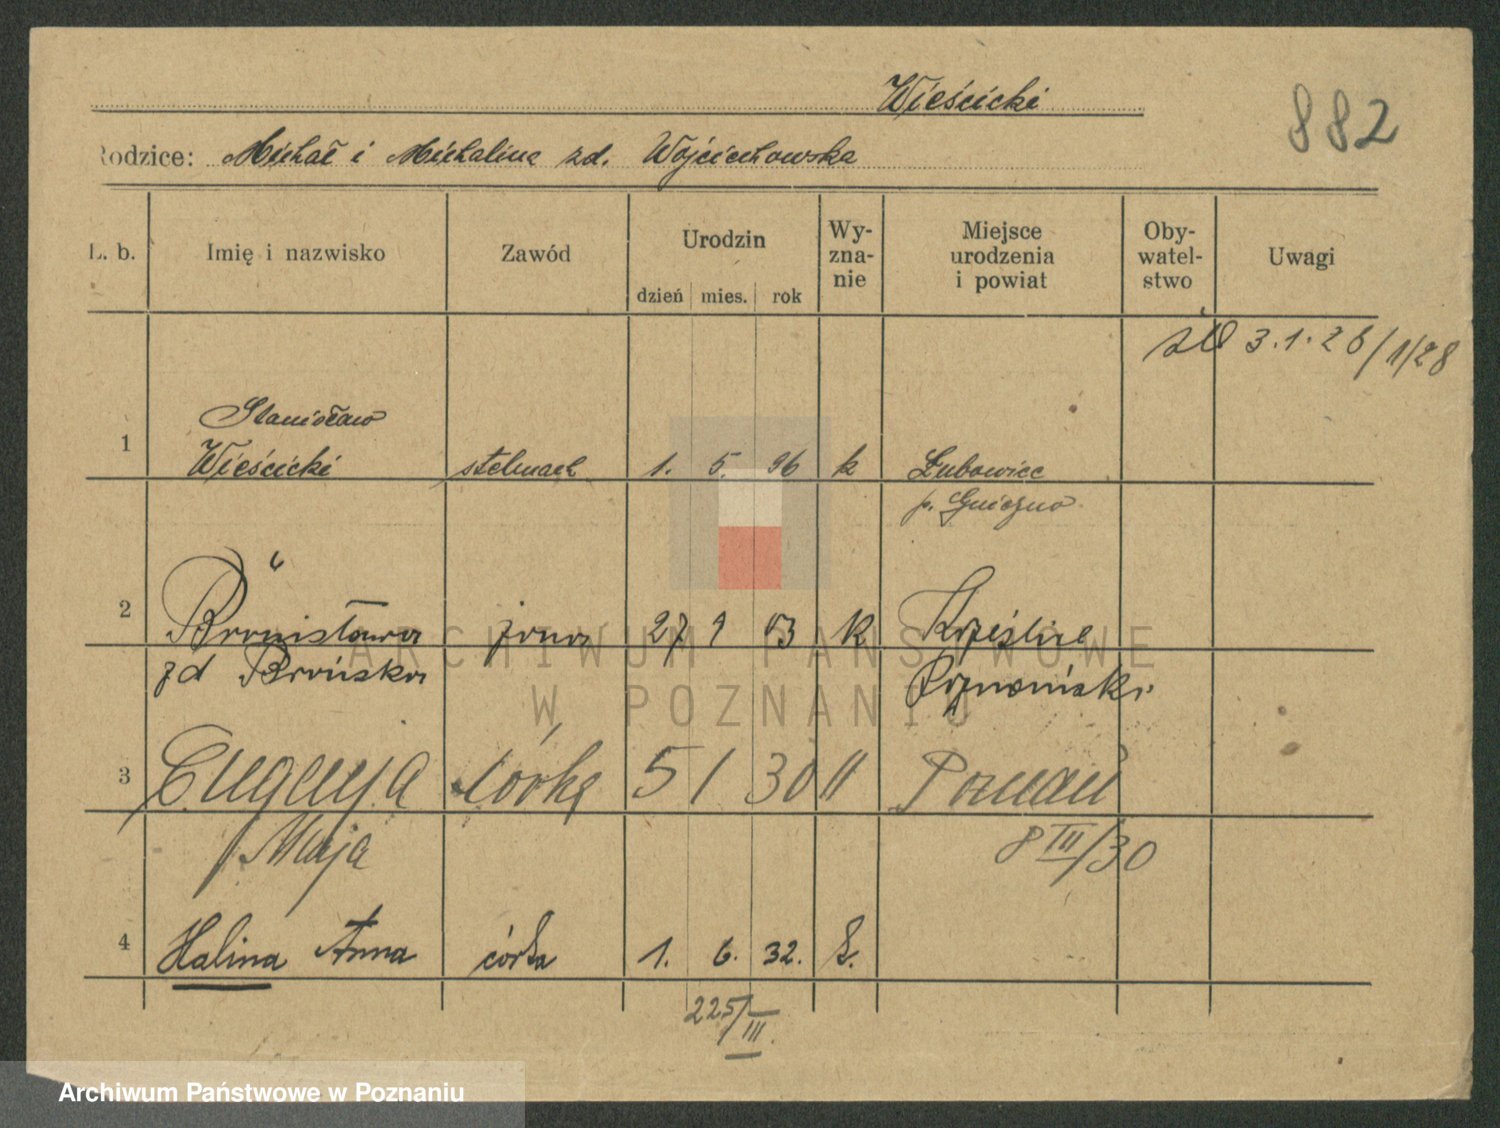 Wieścicki
882
Rodzice: Michał i Michalina zd. Wojciechowska
L. b. Imię i nazwisko Zawód Urodzin dzień mies. rok Wyznanie Miejsce urodzenia i powiat Obywatelstwo Uwagi
3.1.26/1/28
Stanisław
1 Wieścicki stelmach 1. 5. 96 k Łubowice
p. Gniezno
2 Bronisława żona 27 9 03 k
zd Brońska
3 Eugenja córka 5 1 30 " Poznań
Maja 8 III/30
4 Halina Anna córka 1. 6. 32. k.
225/III.
ARCHIWUM PAŃSTWOWE
W POZNANIU
Archiwum Państwowe w Poznaniu